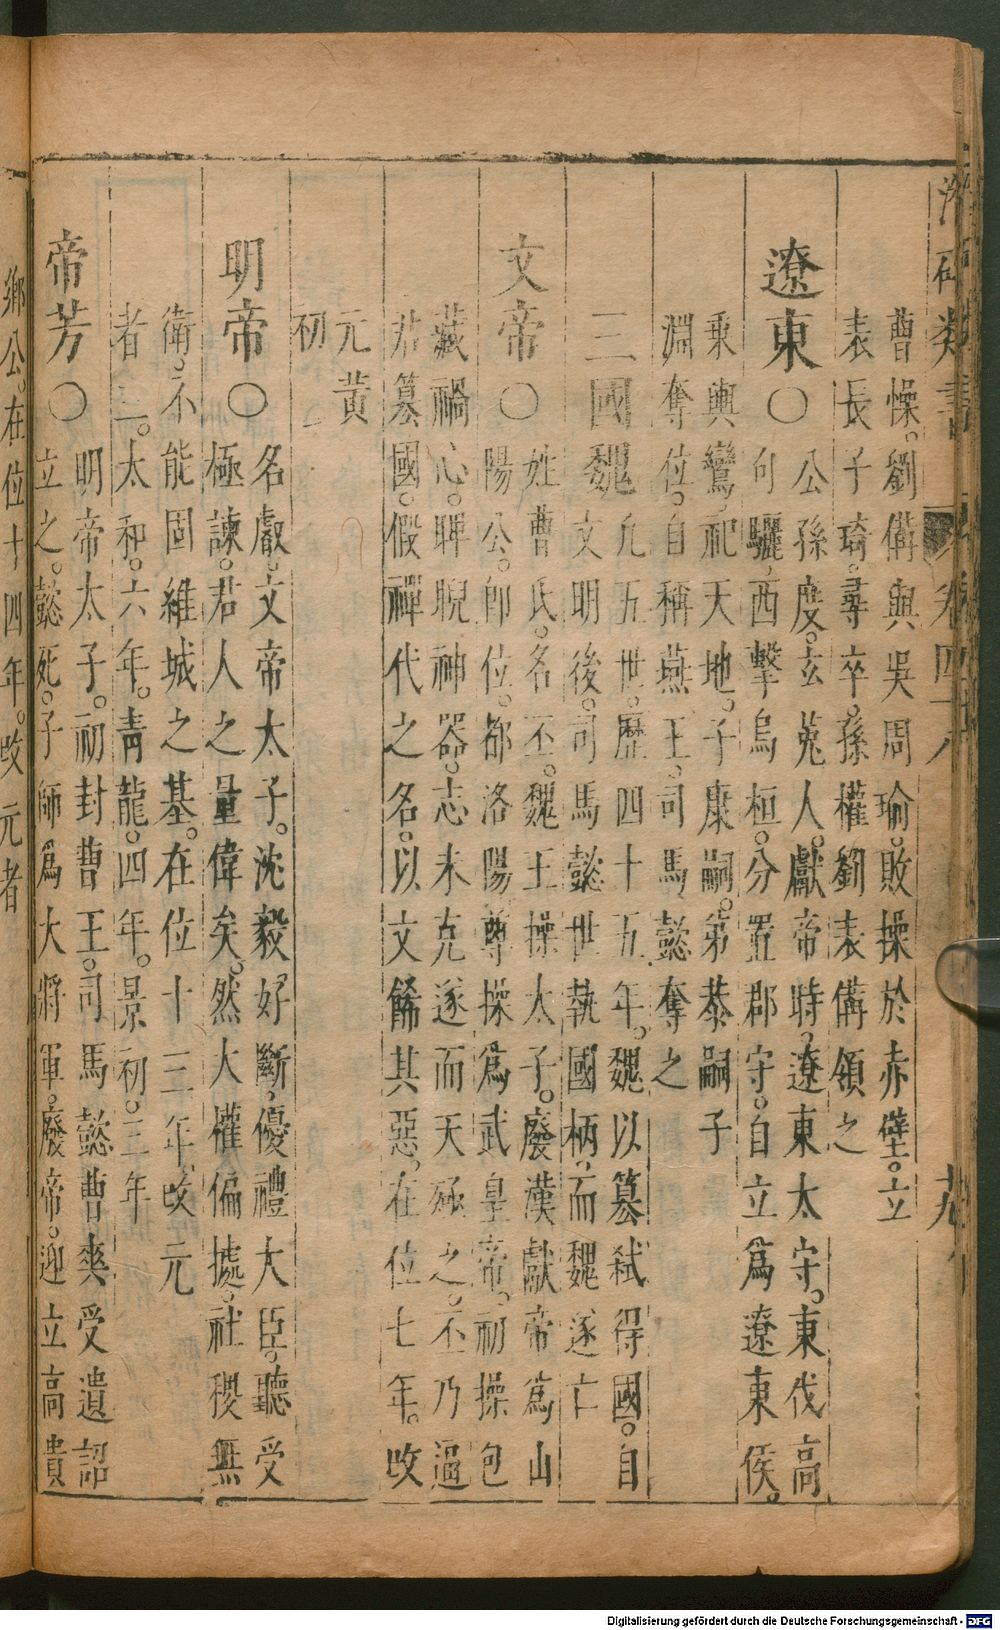 類書
卷四十八
曹慄。劉備與吳周瑜。敗操於赤壁。立
表長子琦。尋卒。孫權劉表備領之
遼東〇
公孫度。玄菟人。獻帝時。遼東太守。東伐高
句驪。西擊烏桓。分置郡守。自立爲遼東侯。
乘輿鸞。祀天地。子康嗣。第恭嗣子
淵奪位。自稱燕王。司馬懿奪之
三國魏
九五世。歷四十五年。魏以篡弒得國。自
文明後。司馬懿世執國柄。而魏遂亡
文帝〇
姓曹氏。名丕。魏王操太子。廢漢獻帝爲山
陽公。卽位。都洛陽尊操爲武皇帝。初操包
藏禍心。睥睨神器。志未克遂而天殛之。丕乃逼
君篡國。假禪代之名。以文餙其惡。在位七年。改
元黃
初
明帝〇
名叡。文帝太子。沈毅好斷。優禮大臣。聽受
極諫。君人之量偉矣。然大權偏據。社稷無
衛。不能固維城之基。在位十三年。改元
者三。太和。六年。靑龍。四年。景初。三年
帝芳〇
明帝太子。初封曹王。司馬懿曹爽受遺詔
立之。懿死。子師爲大將軍。廢帝。迎立高貴
鄉公。在位十四年。改元者
Digitalisierung gefördert durch die Deutsche Forschungsgemeinschaft - DFG